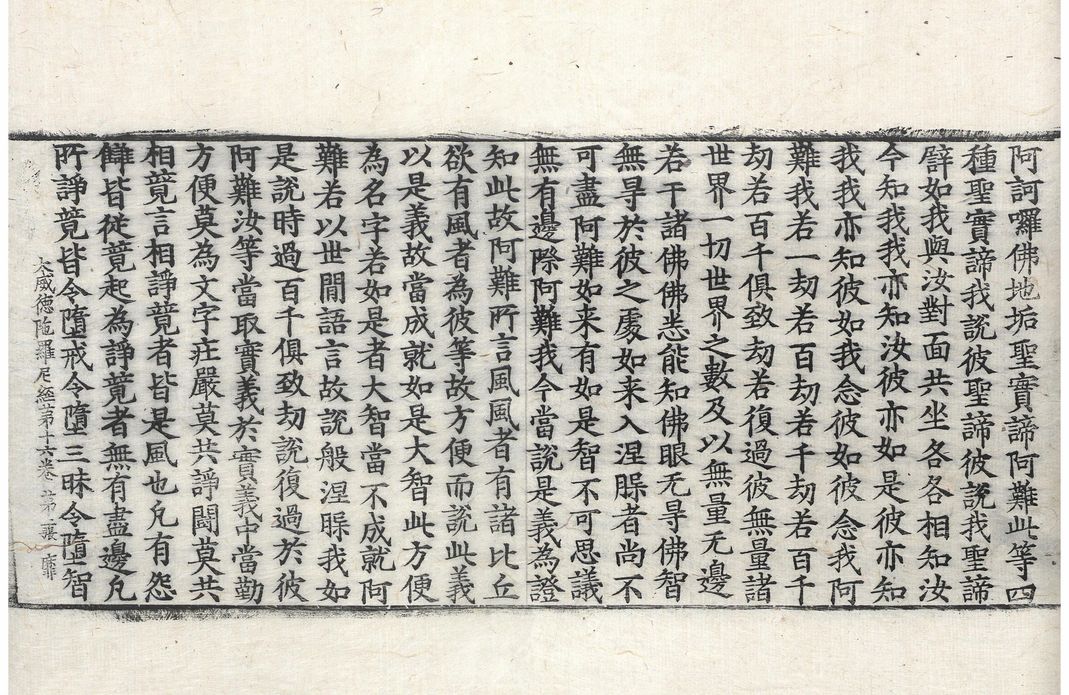 阿訶囉佛地垢聖實諦阿難此等四
種聖實諦我說彼聖諦彼說我聖諦
辟如我與汝對面共坐各各相知汝
今知我我亦知汝彼亦如是彼亦知
我我亦知彼如我念彼如彼念我阿
難我若一劫若百劫若千劫若百千
劫若百千俱致劫若復過彼無量諸
世界一切世界之數及以無量无邊
若干諸佛佛悉能知佛眼无㝵佛智
無㝵於彼之處如来入涅槃者尚不
可盡阿難如来有如是智不可思議
無有邊際阿難我今當說是義為證
知此故阿難所言風風者有諸比丘
欲有風者為彼等故方便而說此義
以是義故當成就如是大智此方便
為名字若如是者大智當不成就阿
難若以世間語言故說般涅槃我如
是說時過百千俱致劫說復過於彼
阿難汝等當取實義於實義中當勤
方便莫為文字庄嚴莫共諍鬪莫共
相竟言相諍竟者皆是風也凡有怨
讎皆從竟起為諍竟者無有盡邊凡
所諍竟皆令墮戒令墮三昧令墮智
大威德陁羅尼經苐十六卷 苐 靡